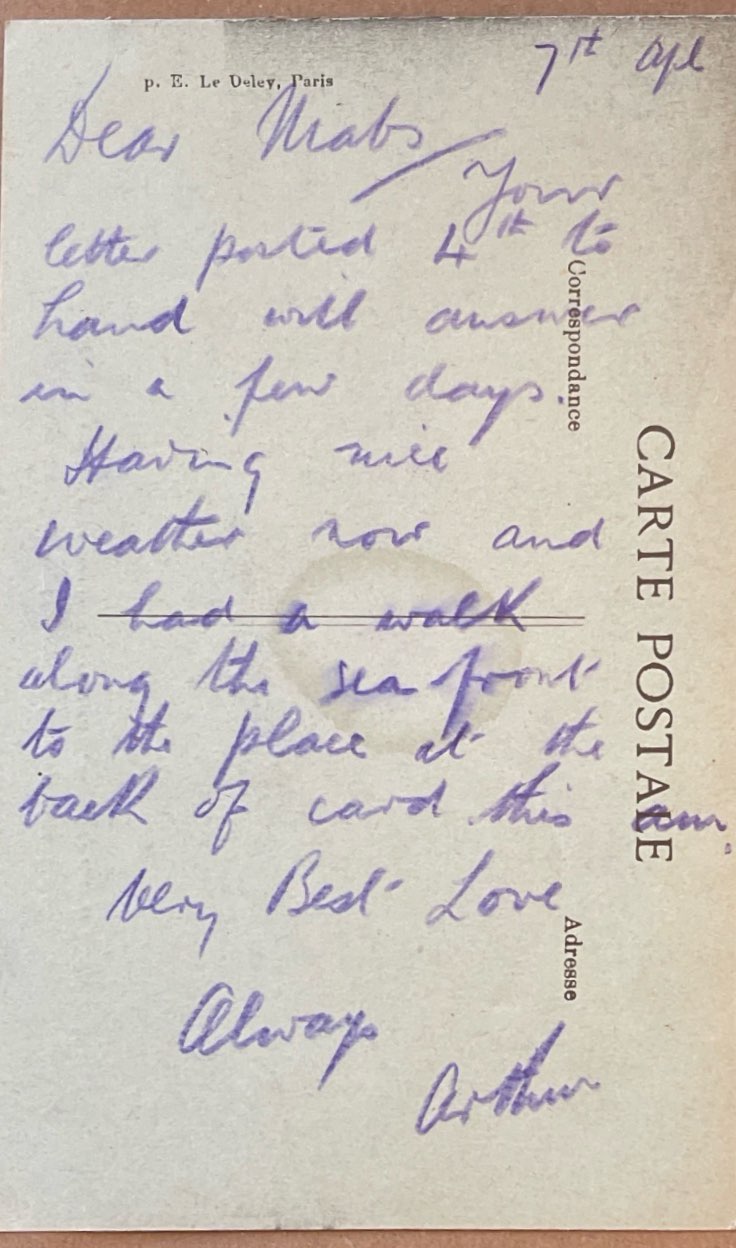 7th Apl
p. E. Le Deley, Paris
Dear Mabs
Your
letter posted 4th to
hand will answer
in a few days.
Having nice
weather now and
I had a walk
along the sea front
to the place at the
back of card this am.
Very Best Love
Always
Arthur
Correspondance
CARTE POSTALE
Adresse